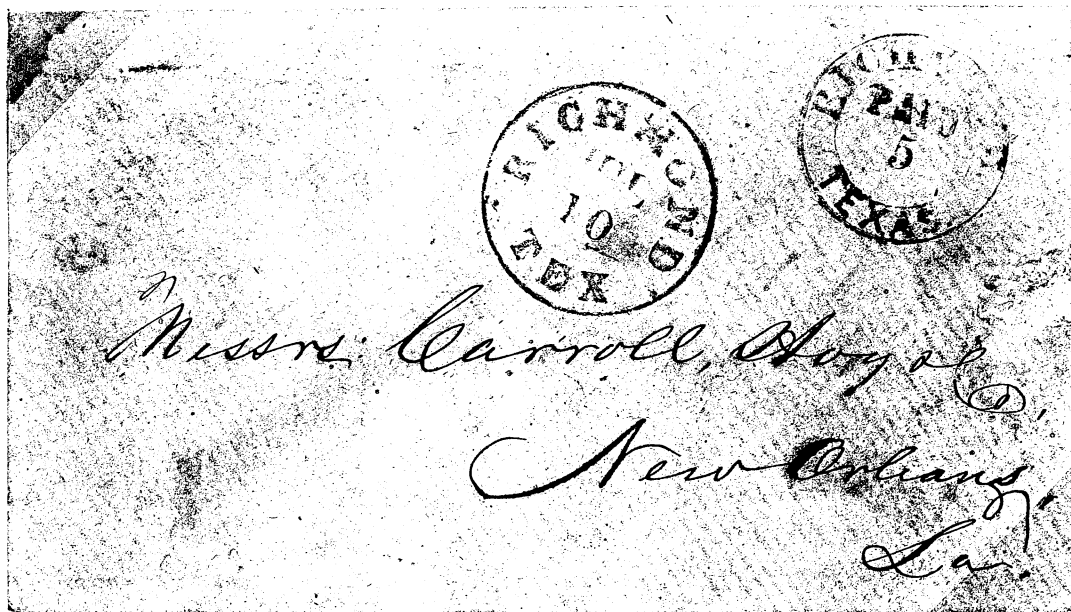 RICHMOND
10
TEX
PAID
5
TEXAS
Messrs. Carroll, Hoy & Co,
New Orleans,
La.